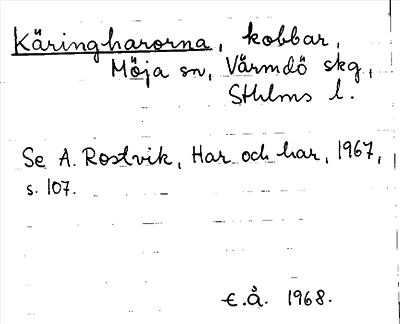 Käringharorna, kobbar,
Möja sn, Värmdö skg,
Sthlms l.
Se A. Rostvik, Har och har, 1967,
s. 107.
€.Å. 1968.